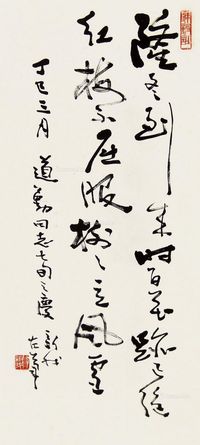 隆冬到来时百花跡已绝
红梅不屈服樹々立风雪
丁巳三月 道勤同志七旬之慶